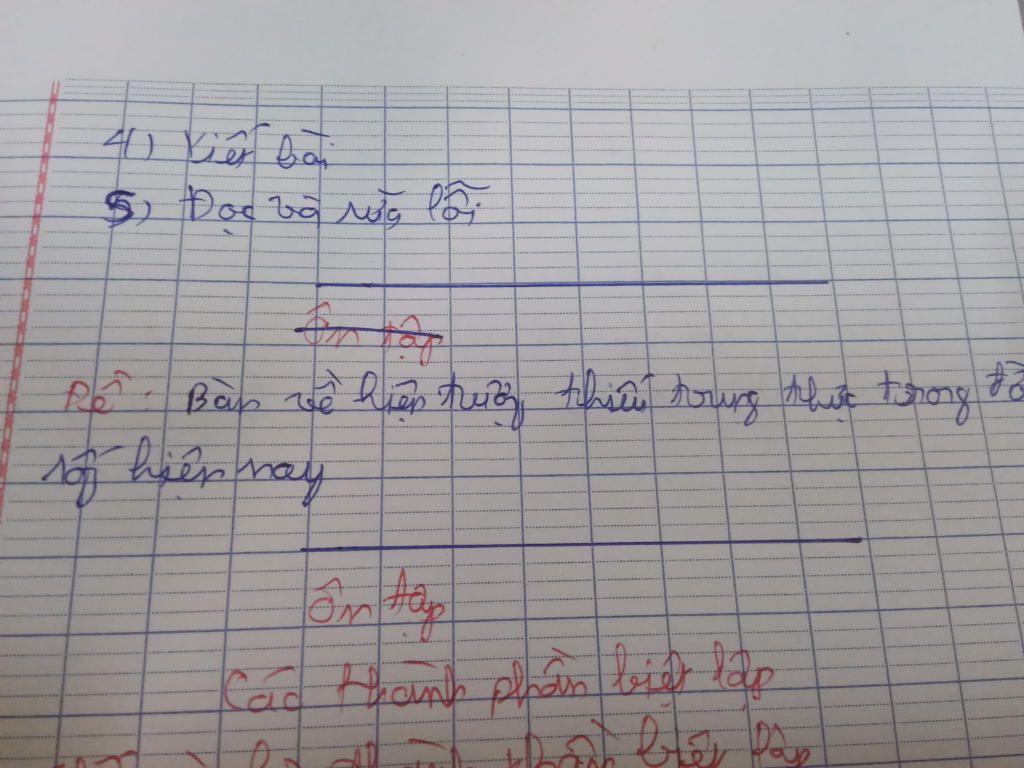 4) Viết bài
5) Đọc và sửa lỗi
Ôn tập
Đề: Bàn về hiện tượng thiếu trung thực trong đời
sống hiện nay
Ôn tập
Các thành phần biệt lập
thành phần biệt lập